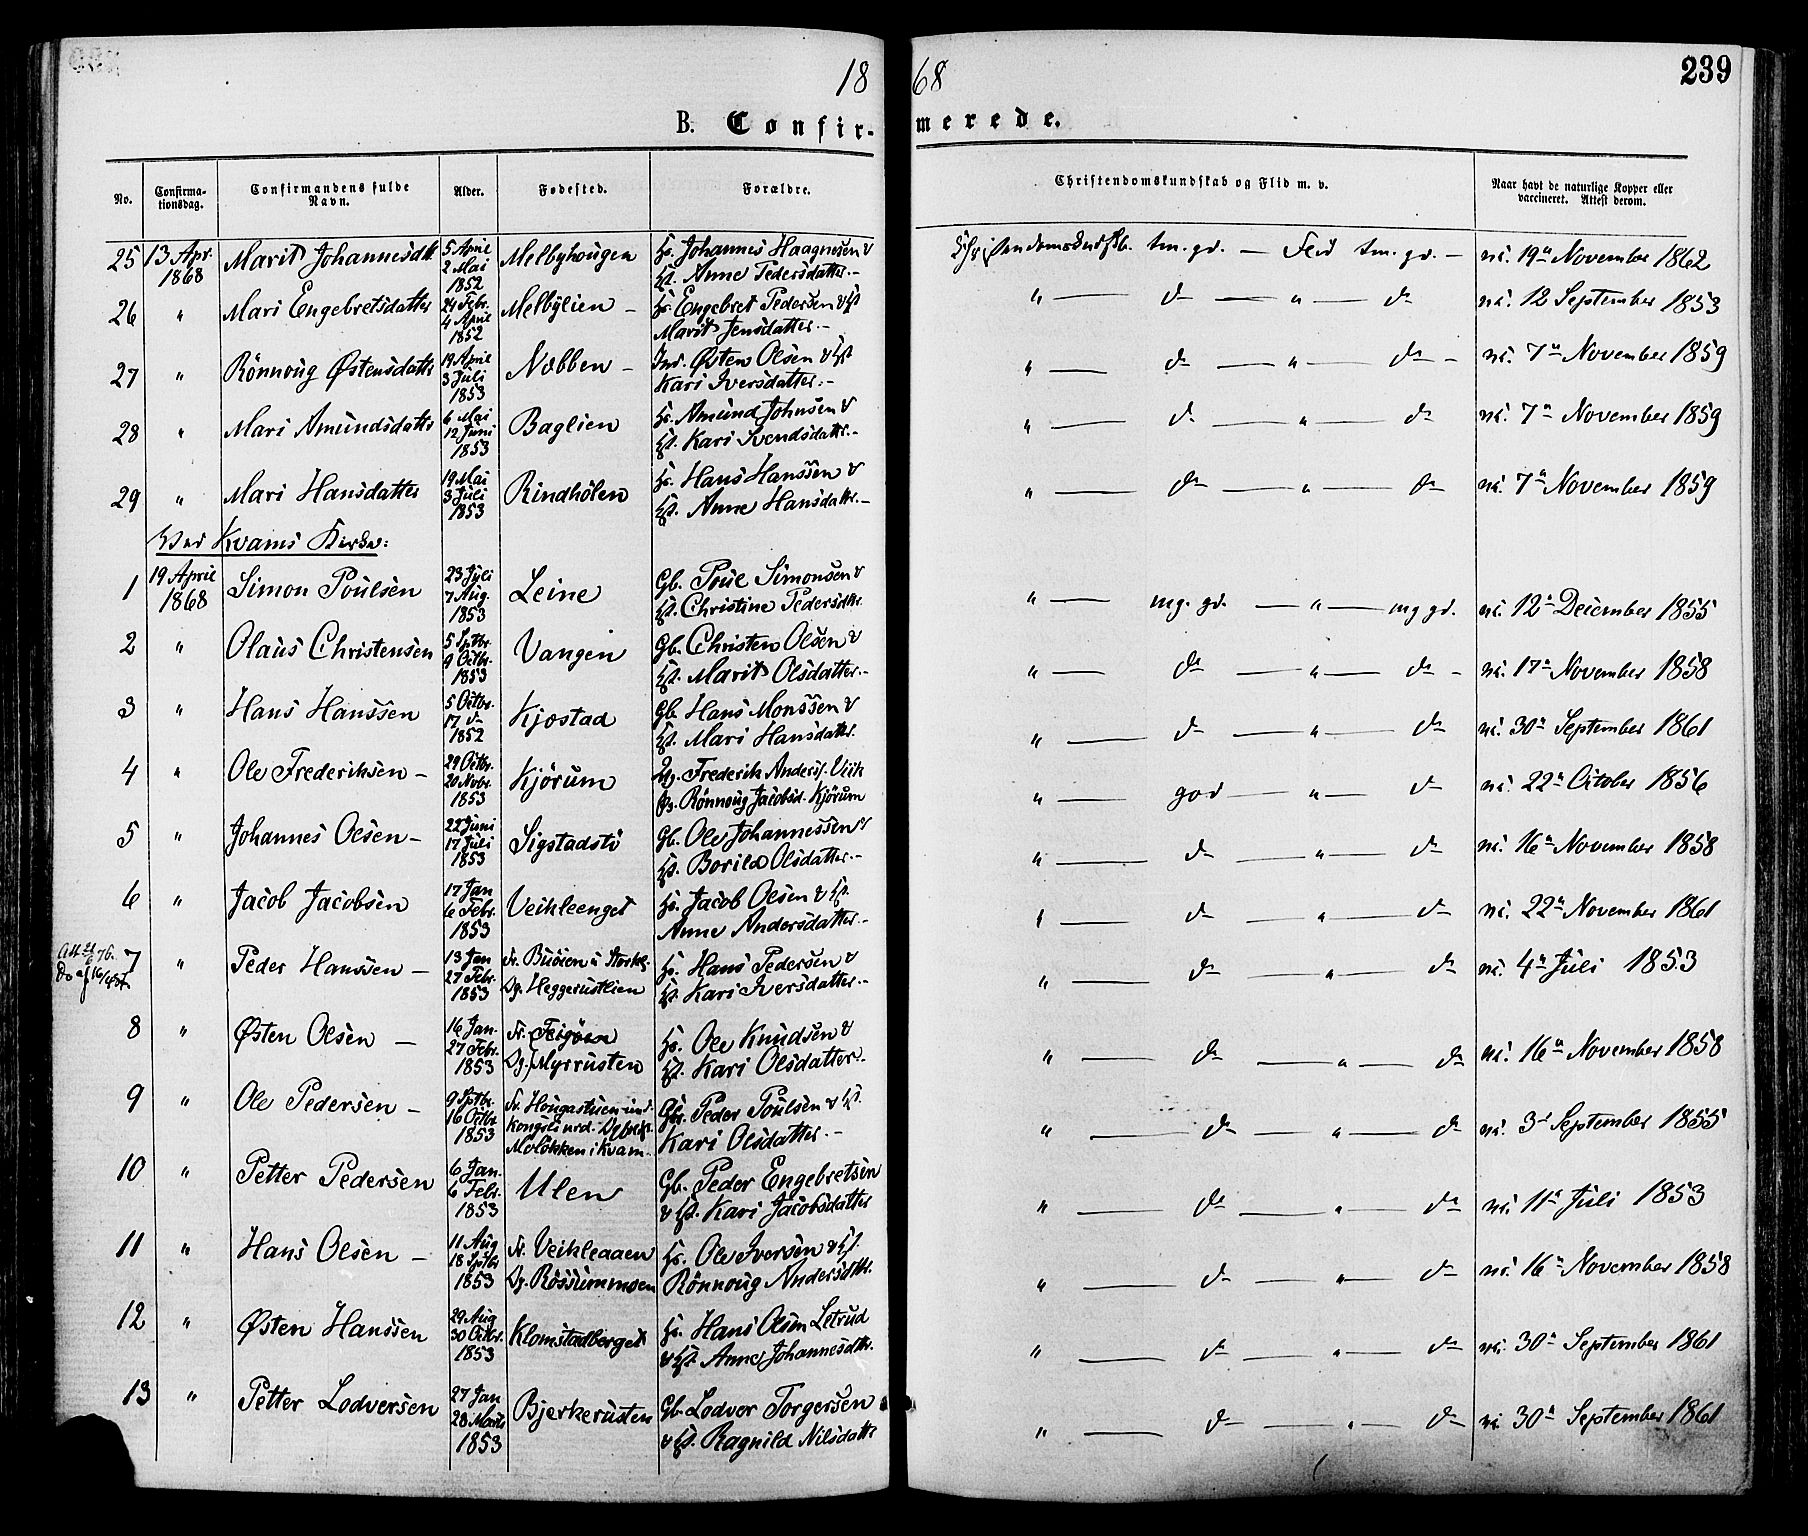 18 68
239
B. Confir- merede.
No. Confirma-tionsdag. Confirmandens fulde Navn. Alder. Fødested. Forældre. Christendomskundskab og Flid m. v. Naar havt de naturlige Kopper eller vaccineret. Attest derom.
25 13 Apr. 1868 Marit Johannesdtr 5 April 2 Mai 1852 Melbyhougen Hs. Johannes Haagensen & Hst. Anne Pedersdatter.- Christendomskundskb. tm. gd. — Flid tm. gd. — vi. 19de November 1862
26 " Mari Engebretsdatter 24 Febr. 4 April 1852 Melbylien - Hs. Engebret Pedersen & Hst Marit Jensdatter.- " — do — " — do vi. 12 September 1853
27 " Rönnoug Østensdatter 19 April 3 Juli 1853 Næbben - Ind. Østen Olsen & Hst Kari Iversdatter.- " — do — " — do - vi. 7de November 1859
28 " Mari Amundsdatter 6 Mai 12 Juni 1853 Baglien Hs. Amund Johnsen & Hst. Kari Svendsdattr.- " — do — " — do vi. 7de November 1859
29 " Mari Hansdatter 19 Mai 3 Juli 1853 Rindhölen Hs. Hans Hanssen & Hst. Anne Hansdattr.- " — do — " — do vi. 7de November 1859
Ved Kvams Kirke:
1 19 April 1868 Simon Poulsen 23 Juli 7 Aug. 1853 Leine Gb. Poul Simonsen & Hst. Christine Pedersdtr. " — mg. gd. — " — mg gd. vi. 12de December 1855
2 " Olaus Christensen 5 Sptbr. 9 Octbr. 1853 Vangen Gb. Christen Olsen & Hst. Marit Olsdatter.- " — do — " — do - vi. 17de November 1858
3 " Hans Hanssen 5 Octbr. 17 do 1852 Kjostad Gb. Hans Monssen & Hst. Mari Hansdatter. " — do — " — do vi. 30de September 1861
4 " Ole Frederiksen - 29 Octbr. 20 Novbr. 1853 Kjörum Ug. Frederik Anders. Viik Pg. Rönnoug Jacobsd. Kjörum " — god — " — do vi. 22de October 1856
5 " Johannes Olsen - 22 Juni 17 Juli 1853 Sigstadstö Gb. Ole Johannessen & Hst. Borild Olsdatter.- " — do — " — do vi. 16de November 1858
6 " Jacob Jacobsen 17 Jan 6 Febr. 1853 Veikleenget Hs. Jacob Olsen & Hst. Anne Andersdatter.- " — do — " — do vi. 22de November 1861
7 " Peder Hanssen - 13 Jan 27 Febr. 1853 Fr. Buöien i Storkl. Dg. Heggerustlien Hs. Hans Pedersen & Hst. Kari Iversdatter.- " — do — " — do vi. 4de Juli 1853
8 " Østen Olsen - 16 Jan. 27 Febr. 1853 Fr. Teigöen Dg. Myrrusten Hs. Ole Knudsen & Hst. Kari Olsdatter. " — do — " — do vi. 16de November 1858
9 " Ole Pedersen - 9 Sptbr. 16 Octbr. 1853 Fr. Hougastuen Molökken i Kvam Gbr. Peder Poulsen & Hst. Kari Olsdatter.- " — do — " — do vi. 3de September 1855
10 " Petter Pedersen 6 Jan. 6 Febr. 1853 Ulen Gb. Peder Engebretsen & Hst. Kari Jacobsdatter " — do — " — do vi. 11te Juli 1853
11 " Hans Olsen - 11 Aug 18 Sptbr 1853 Fr. Veikleaaen Dg. Rössummoen Hs. Ole Iversen & Hst. Rönnoug Andersdtr. " — do — " — do vi. 16de November 1858
12 " Østen Hanssen 29 Aug 30 Octbr. 1853 Klomstadberget Hs. Hans Olsen Letrud & Hst. Anne Johannesdtr. " — do — " — do vi. 30de September 1861
13 " Petter Lodversen 27 Jan 28 Marts 1853 Bjerkerusten Gb. Lodver Torgersen & Hst. Ragnild Nilsdatter " — do — " — do vi 30de September 1861